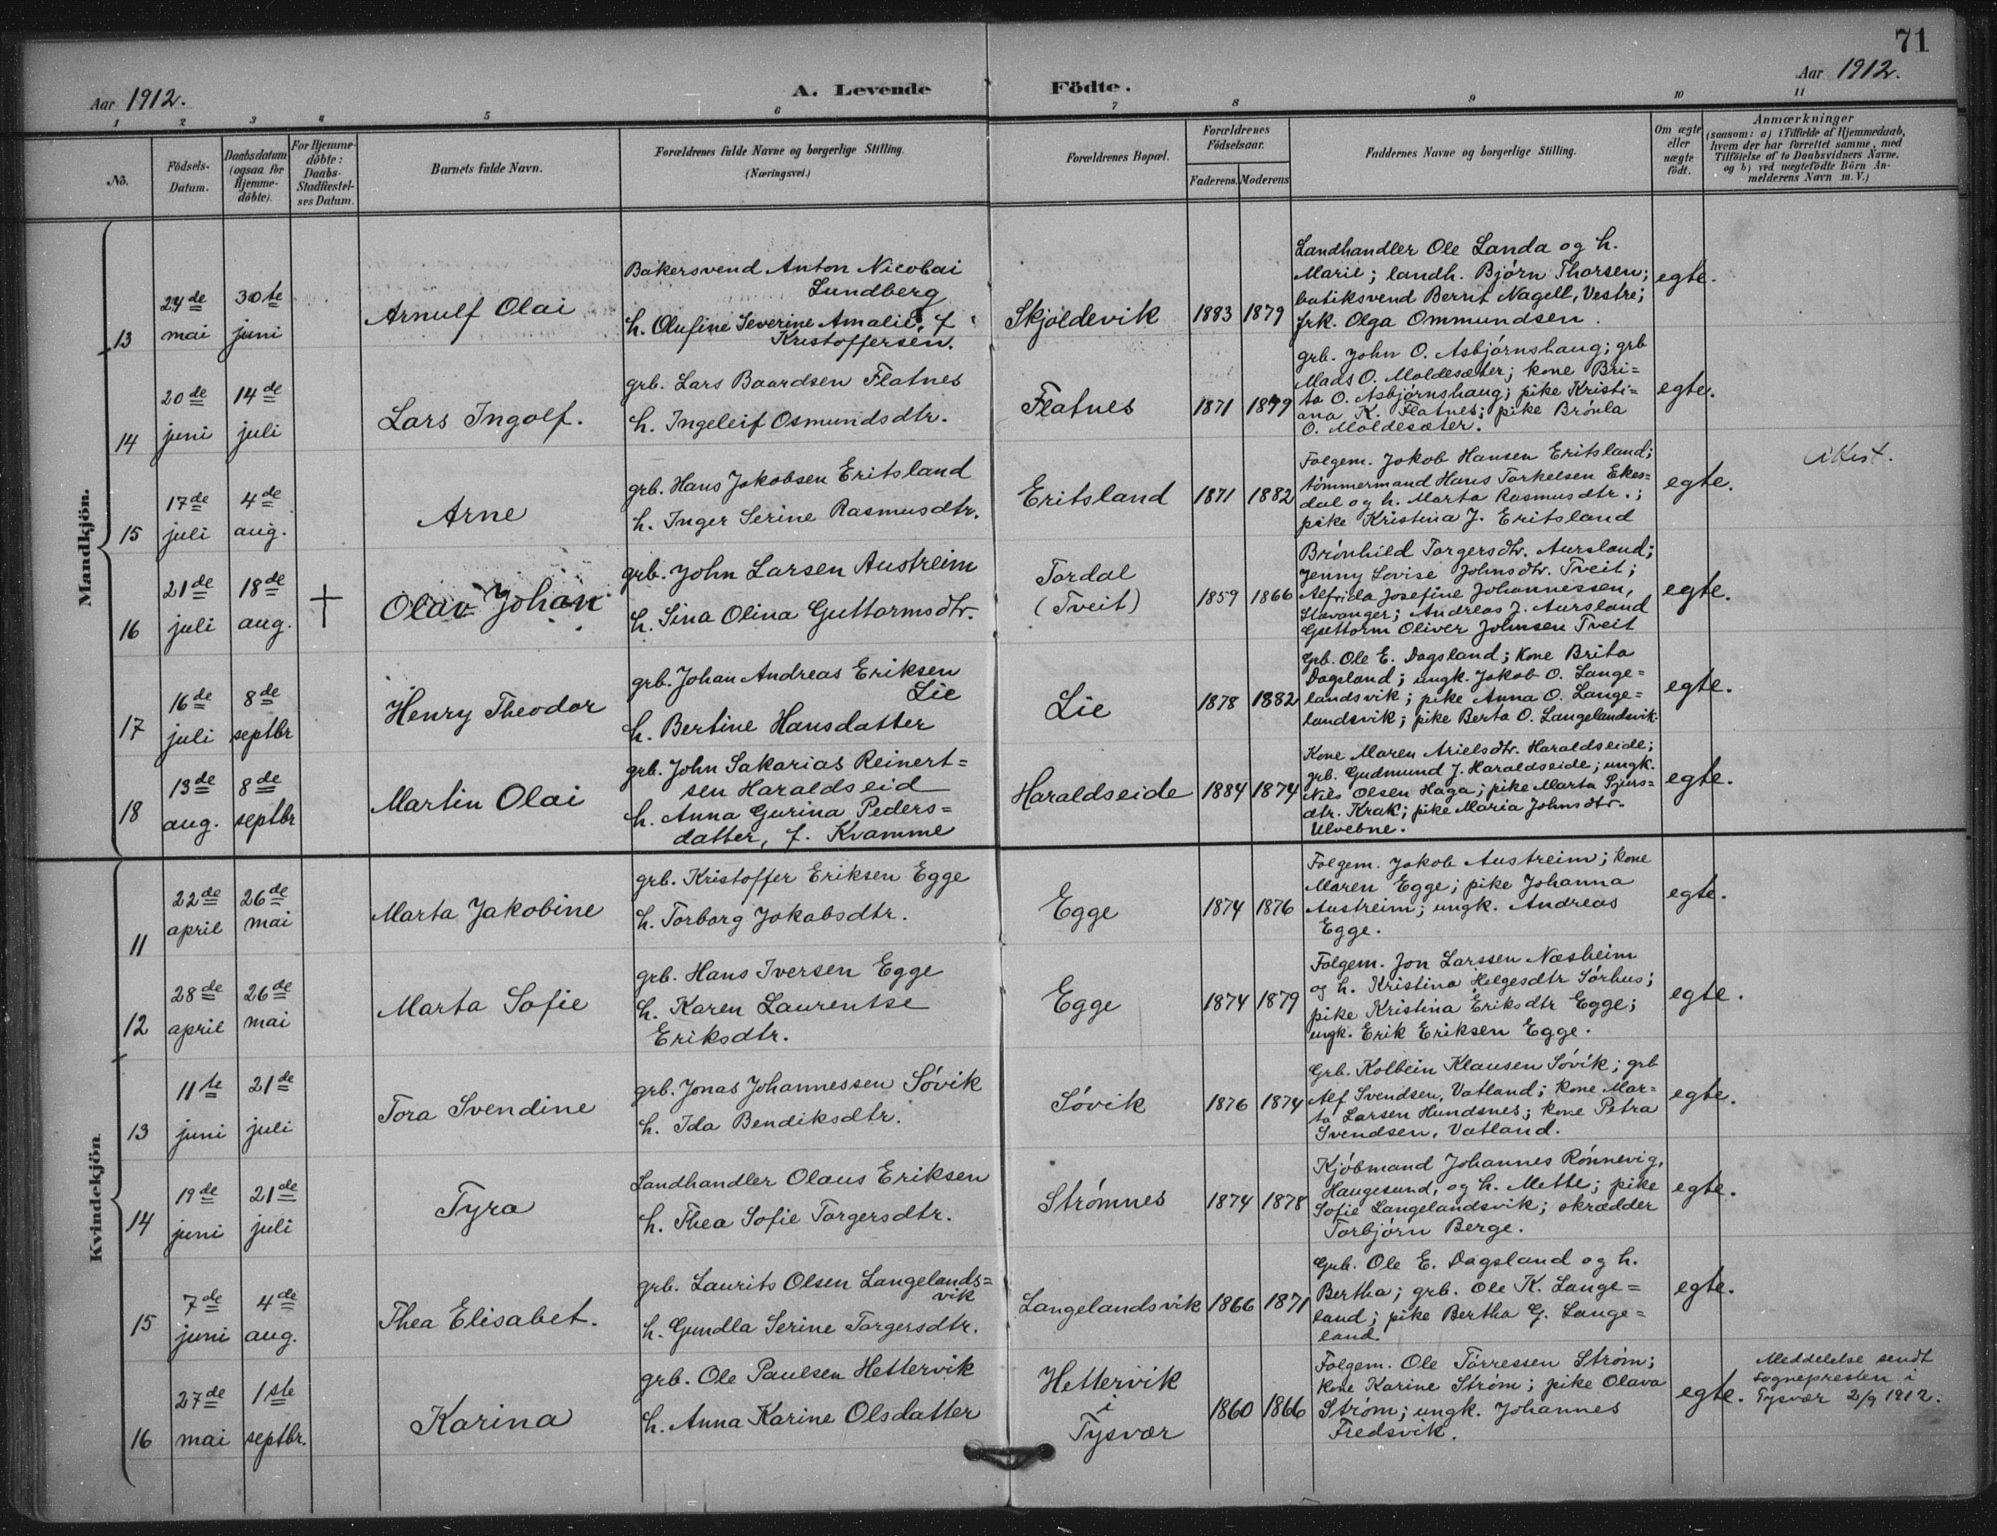 71
Aar 1912.
A. Levende Födte.
Aar 1912.
1 2 3 4 5 6 7 8 9 10 11
No.
Födsels-
Datum.
Daabsdatum
(ogsaa for
Hjemme-
döbte).
For Hjemme-
döbte:
Daabs-
Stadfæstel-
ses Datum.
Barnets fulde Navn.
Forældrenes fulde Navne og borgerlige Stilling.
(Næringsvei.)
Forældrenes Bopæl.
Forældrenes
Födselsaar.
Faderens. Moderens
Faddernes Navne og borgerlige Stilling.
Om ægte
eller
uægte
födt.
Anmærkninger
(saasom: a) i Tilfælde af Hjemmedaab,
hvem der har forrettet samme, med
Tilföielse af to Daabsvidners Navne,
og b) ved uægtefödte Börn An-
melderens Navn m. V.)
Mandkjön.
13
24de
mai
30te
juni
Arnulf Olai
Bakersvend Anton Nicolai
Lundberg
h. Olufine Severine Amalie, f
Kristoffersen.
Skjoldevik
1883 1879
Landhandler Ole Landa og h.
Marie; landh. Bjørn Thorsen;
butiksvend Bernt Nagell, Vestre;
frk. Olga Ommundsen.
egte.
14
20de
juni
14de
juli
Lars Ingolf.
grb. Lars Baardsen Flatnes
h. Ingeleif Osmundsdtr.
Flatnes
1871 1879
grb. John O. Asbjørnshaug; grb
Mads O. Moldesæter; kone Bri=
ta O. Asbjørnshaug; pike Kristi=
ana K. Flatnes; pike Brønla
O. Moldesæter.
egte.
15
17de
juli
4de
aug.
Arne
grb. Hans Jakobsen Eritsland
h. Inger Serine Rasmusdtr.
Eritsland
1871 1882
Folgem. Jakob Hansen Eritsland;
tømmermand Hans Torkelsen Ekes=
dal og h. Marta Rasmusdtr.;
pike Kristina J. Eritsland
egte.
16
21de
juli
18de
aug.
†
Olav Johan
grb. John Larsen Austreim
h. Sina Olina Guttormsdtr.
Tordal
(Tveit)
1859 1866
Brønhild Torgersdtr. Aursland;
Jenny Lovise Johnsdtr. Tveit;
Alfrida Josefine Johannessen,
Stavanger; Andreas J. Aursland
Guttorm Oliver Johnsen Tveit
egte.
17
16de
juli
8de
septbr
Henry Theodor
grb. Johan Andreas Eriksen
Lie
h. Bertine Hansdatter
Lie
1878 1882
Grb. Ole E. Dagsland; kone Brita
Dagsland; ungk. Jakob O. Lange=
landsvik; pike Anna O. Lange=
landsvik; pike Berta O. Langelandsvik.
egte.
18
13de
aug.
8de
septbr
Martin Olai
grb. John Sakarias Reinert=
sen Haraldseid
h. Anna Gurina Peders=
datter, f. Kvamme
Haraldseide
1884 1874
Kone Maren Arielsdtr. Haraldseide;
grb. Gudmund J. Haraldseide; ungk.
Nils Olsen Haga; pike Marta Sjurs=
dtr. Krak; pike Maria Johnsdtr.
Ulvebne.
egte.
Kvindekjön.
11
22de
april
26de
mai
Marta Jakobine
grb. Kristoffer Eriksen Egge
h. Torborg Jakobsdtr.
Egge
1874 1876
Folgem. Jakob Austreim; kone
Maren Egge; pike Johanna
Austreim; ungk. Andreas
Egge.
egte.
12
28de
april
26de
mai
Marta Sofie
grb. Hans Iversen Egge
h. Karen Laurentse
Eriksdtr.
Egge
1874 1879
Folgem. Jon Larssen Næsheim
og h. Kristina Helgesdtr Sørhus;
pike Kristina Eriksdtr Egge;
ungk. Erik Eriksen Egge.
egte.
13
11te
juni
21de
juli
Tora Svendine
grb. Jonas Johannessen Søvik
h. Ida Bendiksdtr.
Søvik
1876 1874
Grb. Kolbein Klausen Søvik; grb
Alf Svendsen, Vatland; kone Mar=
ta Larsen Hundsnes; kone Petra
Svendsen, Vatland.
egte.
14
19de
juni
21de
juli
Tyra
Landhandler Olaus Eriksen
h. Thea Sofie Torgersdtr.
Strømnes
1874 1878
Kjøbmand Johannes Rønnevig,
Haugesund, og h. Mette; pike
Sofie Langelandsvik; skrædder
Torbjørn Berge.
egte.
15
7de
juni
4de
aug.
Thea Elisabet.
grb. Laurits Olsen Langelands=
vik
h. Gundla Serine Torgersdtr.
Langelandsvik
1866 1871
Grb. Ole E. Dagsland og h.
Bertha; grb. Ole K. Lange=
land; pike Bertha G. Lange=
land.
egte.
16
27de
mai
1ste
septbr.
Karina
grb. Ole Paulsen Hettervik
h. Anna Karine Olsdatter
Hettervik
i
Tysvær
1860 1866
Folgem. Ole Tørressen Strøm;
kone Karine Strøm; pike Olava
Strøm; ungk. Johannes
Fredsvik.
egte.
Meddelelse sendt
sognepresten i
Tysvær 2/9 1912.